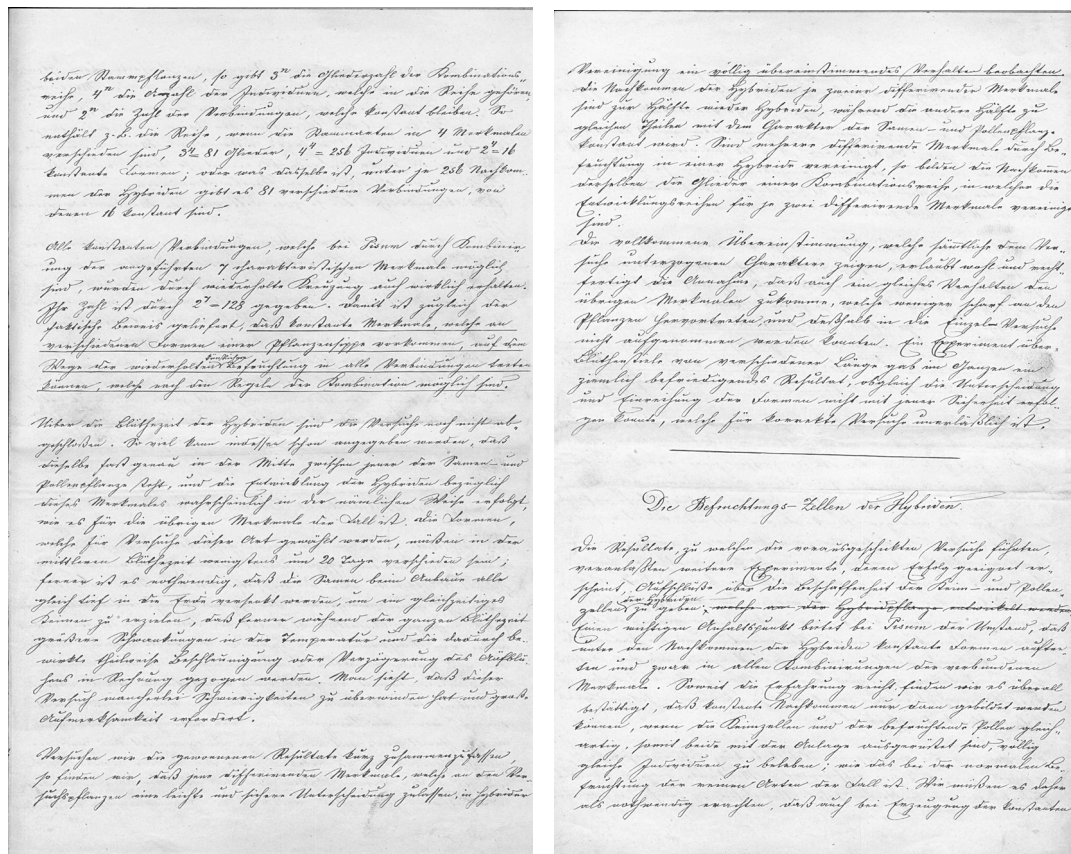 beiden Stammpflanzen, so gibt 3ⁿ die Gliederzahl der Kombinations-
reihe, 4ⁿ die Anzahl der Individuen, welche in die Reihe gehören,
und 2ⁿ die Zahl der Verbindungen, welche konstant bleiben. So
enthält z. B. die Reihe, wenn die Stammarten in 4 Merkmalen
verschieden sind, 3⁴ = 81 Glieder, 4⁴ = 256 Individuen und 2⁴ = 16
konstante Formen; oder was dasselbe ist, unter je 256 Nachkom-
men der Hybriden gibt es 81 verschiedene Verbindungen, von
denen 16 konstant sind.
Alle konstanten Verbindungen, welche bei Pisum durch Kombinir-
ung der angeführten 7 charakteristischen Merkmale möglich
sind, wurden durch wiederholte Kreuzung auch wirklich erhalten.
Ihre Zahl ist durch 2⁷ = 128 gegeben. Damit ist zugleich der
faktische Beweis geliefert, daß konstante Merkmale, welche an
verschiedenen Formen einer Pflanzensippe vorkommen, auf dem
Wege der wiederholten künstlichen Befruchtung in alle Verbindungen treten
können, welche nach den Regeln der Kombination möglich sind.
Ueber die Blüthezeit der Hybriden sind die Versuche noch nicht ab-
geschloßen. So viel kann indessen schon angegeben werden, daß
dieselbe fast genau in der Mitte zwischen jener der Samen- und
Pollenpflanze steht, und die Entwicklung der Hybriden bezüglich
dieses Merkmales wahrscheinlich in der nämlichen Weise erfolgt,
wie es für die übrigen Merkmale der Fall ist. Die Formen,
welche für Versuche dieser Art gewählt werden, müßen in der
mittleren Blüthezeit wenigstens um 20 Tage verschieden sein;
ferner ist es nothwendig, daß die Samen beim Anbaue alle
gleich tief in die Erde versenkt werden, um ein gleichzeitiges
Keimen zu erzielen, daß ferner während der ganzen Blüthezeit
größere Schwankungen in der Temperatur und die dadurch be-
wirkte theilweise Beschleunigung oder Verzögerung des Aufblü-
hens in Rechnung gezogen werden. Man sieht, daß dieser
Versuch mancherlei Schwierigkeiten zu überwinden hat und große
Aufmerksamkeit erfordert.
Versuchen wir die gewonnenen Resultate kurz zusammenzufassen,
so finden wir, daß jene differirenden Merkmale, welche an den Ver-
suchspflanzen eine leichte und sichere Unterscheidung zulassen, in hybrider
Vereinigung ein völlig übereinstimmendes Verhalten beobachten.
Die Nachkommen der Hybriden je zweier differirender Merkmale
sind zur Hälfte wieder Hybriden, während die andere Hälfte zu
gleichen Theilen mit dem Charakter der Samen- und Pollenpflanze
konstant wird. Sind mehrere differirende Merkmale durch Be-
fruchtung in einer Hybride vereinigt, so bilden die Nachkommen
derselben die Glieder einer Kombinationsreihe, in welcher die
Entwicklungsreihen für je zwei differirende Merkmale vereinigt
sind.
Die vollkommene Übereinstimmung, welche sämtliche dem Ver-
suche unterzogenen Charaktere zeigen, erlaubt wohl und recht-
fertigt die Annahme, daß auch ein gleiches Verhalten den
übrigen Merkmalen zukomme, welche weniger scharf an den
Pflanzen hervortreten, und deßhalb in die Einzel-Versuche
nicht aufgenommen werden konnten. Ein Experiment über
Blüthenstiele von verschiedener Länge gab im Ganzen ein
ziemlich befriedigendes Resultat, obgleich die Unterscheidung
und Einreihung der Formen nicht mit jener Sicherheit erfol-
gen konnte, welche für korrekte Versuche unerläßlich ist.
Die Befruchtungs-Zellen der Hybriden.
Die Resultate, zu welchen die vorausgeschickten Versuche führten,
veranlaßten weitere Experimente, deren Erfolg geeignet er-
scheint, Aufschlüße über die Beschaffenheit der Keim- und Pollen-
zellen der Hybriden zu geben, welche an der Hybridpflanze entwickelt werden.
Einen wichtigen Anhaltspunkt bietet bei Pisum der Umstand, daß
unter den Nachkommen der Hybriden konstante Formen auftre-
ten und zwar in allen Kombinirungen der verbundenen
Merkmale. Soweit die Erfahrung reicht, finden wir es überall
bestättigt, daß konstante Nachkommen nur dann gebildet werden
können, wenn die Keimzellen und der befruchtende Pollen gleich-
artig, somit beide mit der Anlage ausgerüstet sind, völlig
gleiche Individuen zu beleben, wie das bei der normalen Be-
fruchtung der reinen Arten der Fall ist. Wir müßen es daher
als nothwendig erachten, daß auch bei Erzeugung der konstanten